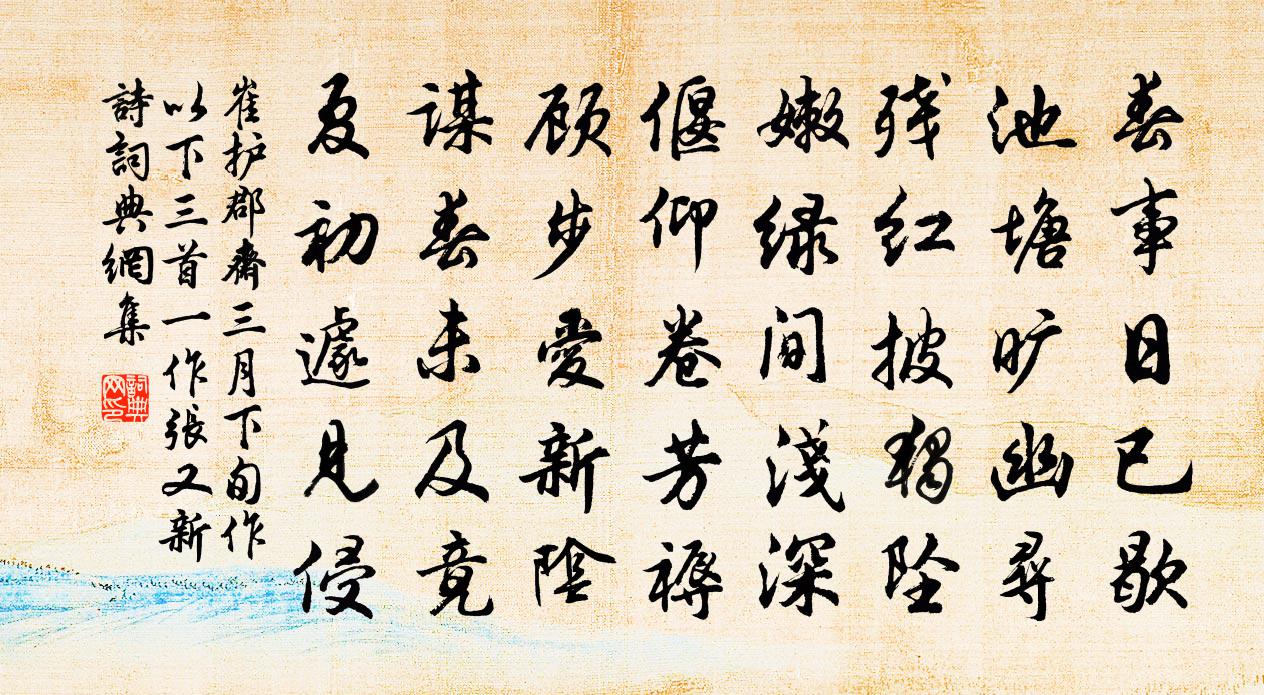 春事日已歇
池塘旷幽尋
残红披獨坠
嫩绿间淺深
偃仰卷芳褥
顾步愛新陰
谋春未及竟
夏初遽見侵
崔护郡齋三月下旬作
以下三首一作張又新
詩詞典網集
詞典
网印